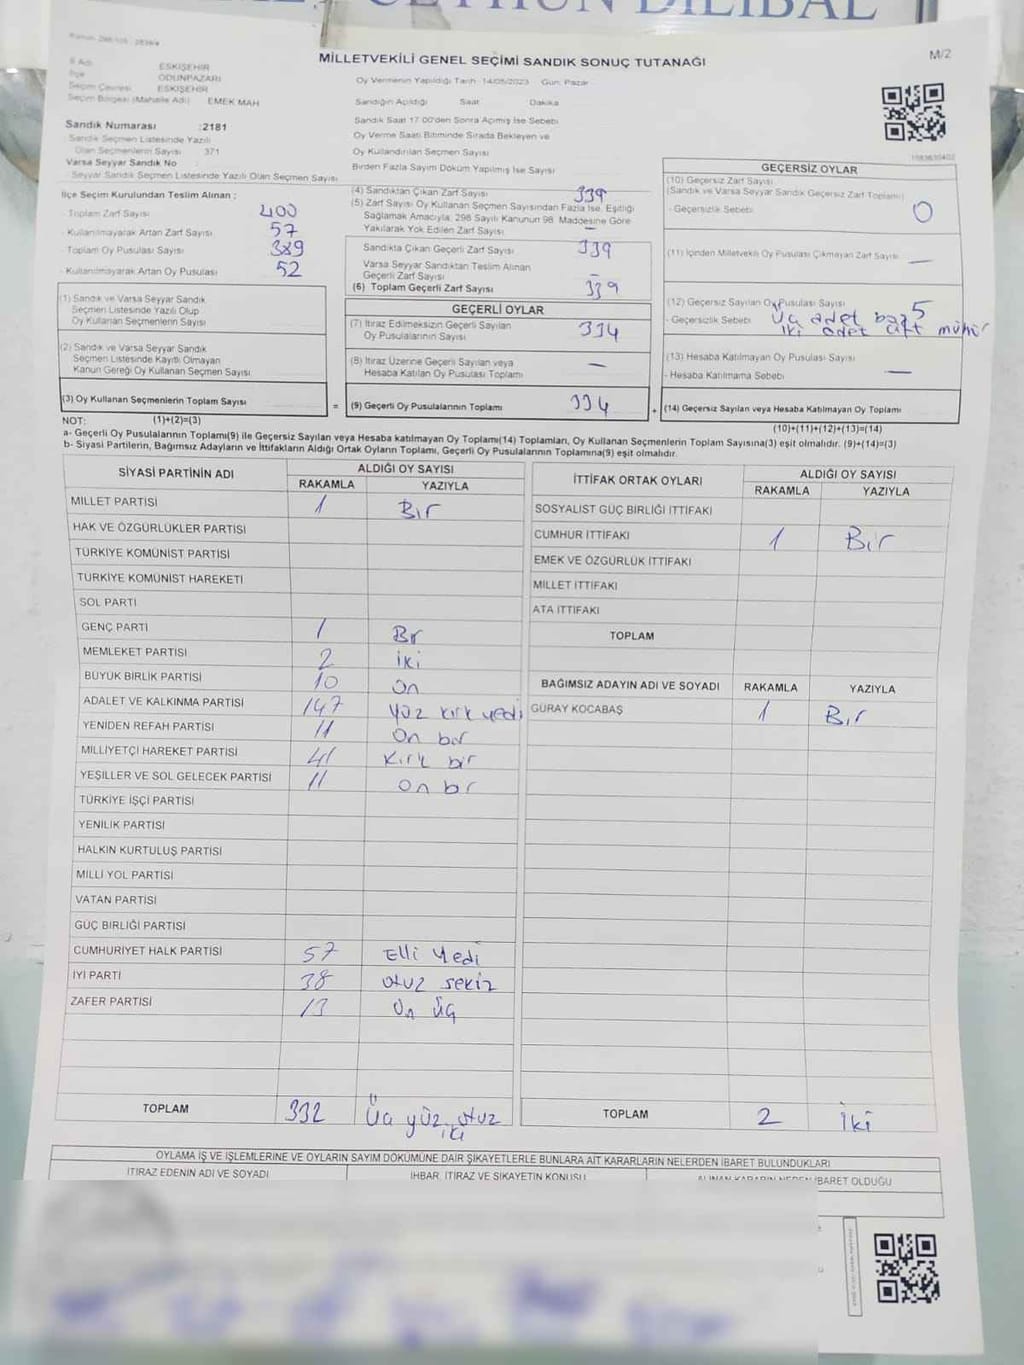 MİLLETVEKİLİ GENEL SEÇİMİ SANDIK SONUÇ TUTANAĞI
M/2
ESKİŞEHİR
ODUNPAZARI
ESKİŞEHİR
Seçim Bölgesi (Mahalle Adı) EMEK MAH
Oy Vermenin Yapıldığı Tarih : 14/05/2023 Gün: Pazar
Sandığın Açıldığı Saat Dakika
Sandık Saat 17.00'den Sonra Açılmış İse Sebebi
Oy Verme Saati Bitiminde Sırada Bekleyen ve
Oy Kullandırılan Seçmen Sayısı
Birden Fazla Sayım Döküm Yapılmış İse Sayısı
Sandık Numarası :2181
Sandık Seçmen Listesinde Yazılı
Olan Seçmenlerin Sayısı 371
Varsa Seyyar Sandık No :
Seyyar Sandık Seçmen Listesinde Yazılı Olan Seçmen Sayısı
İlçe Seçim Kurulundan Teslim Alınan ;
- Toplam Zarf Sayısı 400
- Kullanılmayarak Artan Zarf Sayısı 57
- Toplam Oy Pusulası Sayısı 389
- Kullanılmayarak Artan Oy Pusulası 52
(1) Sandık ve Varsa Seyyar Sandık
Seçmen Listesinde Yazılı Olup
Oy Kullanan Seçmenlerin Sayısı
(2) Sandık ve Varsa Seyyar Sandık
Seçmen Listesinde Kayıtlı Olmayan
Kanun Gereği Oy Kullanan Seçmen Sayısı
(3) Oy Kullanan Seçmenlerin Toplam Sayısı
(4) Sandıktan Çıkan Zarf Sayısı 339
(5) Zarf Sayısı Oy Kullanan Seçmen Sayısından Fazla İse, Eşitliği
Sağlamak Amacıyla, 298 Sayılı Kanunun 98. Maddesine Göre
Yakılarak Yok Edilen Zarf Sayısı —
Sandıkta Çıkan Geçerli Zarf Sayısı 339
Varsa Seyyar Sandıktan Teslim Alınan
Geçerli Zarf Sayısı –
(6) Toplam Geçerli Zarf Sayısı 339
GEÇERLİ OYLAR
(7) İtiraz Edilmeksizin Geçerli Sayılan
Oy Pusulalarının Sayısı 334
(8) İtiraz Üzerine Geçerli Sayılan veya
Hesaba Katılan Oy Pusulası Toplamı —
= (9) Geçerli Oy Pusulalarının Toplamı 334
GEÇERSİZ OYLAR
(10) Geçersiz Zarf Sayısı
(Sandık ve Varsa Seyyar Sandık Geçersiz Zarf Toplamı)
- Geçersizlik Sebebi: 0
(11) İçinden Milletvekili Oy Pusulası Çıkmayan Zarf Sayısı —
(12) Geçersiz Sayılan Oy Pusulası Sayısı 5
- Geçersizlik Sebebi: üç adet
iki adet çift mühür
(13) Hesaba Katılmayan Oy Pusulası Sayısı
- Hesaba Katılmama Sebebi: —
+ (14) Geçersiz Sayılan veya Hesaba Katılmayan Oy Toplamı
NOT: (1)+(2)=(3)
(10)+(11)+(12)+(13)=(14)
a- Geçerli Oy Pusulalarının Toplamı(9) ile Geçersiz Sayılan veya Hesaba katılmayan Oy Toplamı(14) Toplamları, Oy Kullanan Seçmenlerin Toplam Sayısına(3) eşit olmalıdır. (9)+(14)=(3)
b- Siyasi Partilerin, Bağımsız Adayların ve İttifakların Aldığı Ortak Oyların Toplamı, Geçerli Oy Pusulalarının Toplamına(9) eşit olmalıdır.
SİYASİ PARTİNİN ADI ALDIĞI OY SAYISI
RAKAMLA YAZIYLA
MİLLET PARTİSİ 1 Bir
HAK VE ÖZGÜRLÜKLER PARTİSİ
TÜRKİYE KOMÜNİST PARTİSİ
TÜRKİYE KOMÜNİST HAREKETİ
SOL PARTİ
GENÇ PARTİ 1 Bir
MEMLEKET PARTİSİ 2 iki
BÜYÜK BİRLİK PARTİSİ 10 On
ADALET VE KALKINMA PARTİSİ 147 yüz kırk yedi
YENİDEN REFAH PARTİSİ 11 On bir
MİLLİYETÇİ HAREKET PARTİSİ 41 kırk bir
YEŞİLLER VE SOL GELECEK PARTİSİ 11 On bir
TÜRKİYE İŞÇİ PARTİSİ
YENİLİK PARTİSİ
HALKIN KURTULUŞ PARTİSİ
MİLLİ YOL PARTİSİ
VATAN PARTİSİ
GÜÇ BİRLİĞİ PARTİSİ
CUMHURİYET HALK PARTİSİ 57 Elli yedi
İYİ PARTİ 38 otuz sekiz
ZAFER PARTİSİ 13 On üç
TOPLAM 332 Üç yüz otuz
iki
İTTİFAK ORTAK OYLARI ALDIĞI OY SAYISI
RAKAMLA YAZIYLA
SOSYALİST GÜÇ BİRLİĞİ İTTİFAKI
CUMHUR İTTİFAKI 1 Bir
EMEK VE ÖZGÜRLÜK İTTİFAKI
MİLLET İTTİFAKI
ATA İTTİFAKI
TOPLAM
BAĞIMSIZ ADAYIN ADI VE SOYADI RAKAMLA YAZIYLA
GÜRAY KOCABAŞ 1 Bir
TOPLAM 2 İki
OYLAMA İŞ VE İŞLEMLERİNE VE OYLARIN SAYIM DÖKÜMÜNE DAİR ŞİKAYETLERLE BUNLARA AİT KARARLARIN NELERDEN İBARET BULUNDUKLARI
İTİRAZ EDENİN ADI VE SOYADI İHBAR, İTİRAZ VE ŞİKAYETİN KONUSU ALINAN KARARIN NEDEN İBARET OLDUĞU